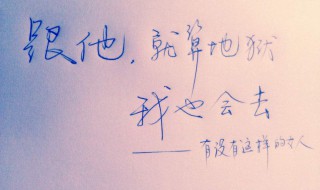 跟他，就算地狱
我也会去
——有没有这样的女人